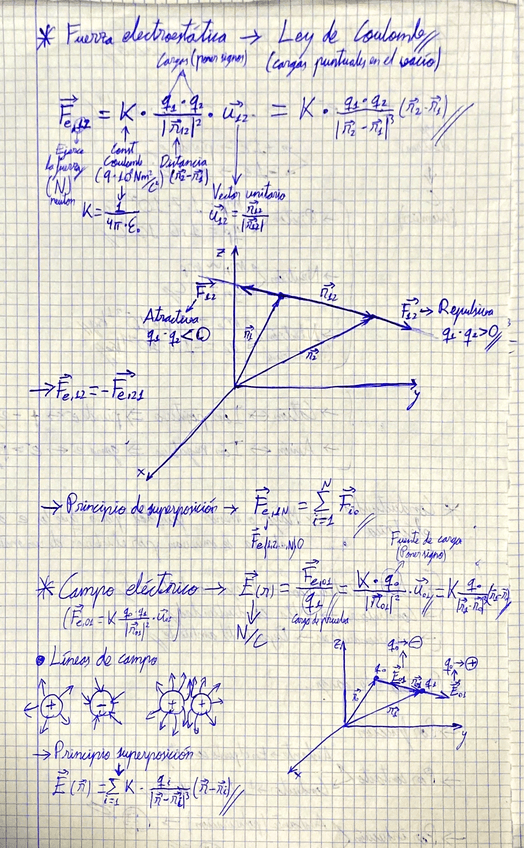 * Fuerza electrostática → Ley de Coulomb
Cargas (poner signos) (cargas puntuales en el vacío)
F⃗e,12 = K · q₁·q₂/|r⃗₁₂|² · u⃗₁₂ = K · q₁·q₂/|r⃗₂-r⃗₁|³ (r⃗₂-r⃗₁)
Ejerce la fuerza (N) newton
Const Coulomb (9·10⁹Nm²/C²)
Distancia (r⃗₂-r⃗₁)
K = 1/4π·ε₀
Vector unitario
u⃗₁₂ = r⃗₁₂/|r⃗₁₂|
z
F⃗₁₂ r⃗₁₂ F⃗₁₂ → Repulsiva
Atractiva q₁·q₂>0
q₁·q₂<0
r⃗₁ r⃗₂
→ F⃗e,12 = -F⃗e,21
y
x
→ Principio de superposición → F⃗e,1N = N Σ i=1 F⃗i0
F⃗e(1,2...N),0
Fuente de carga (Poner signo)
* Campo eléctrico → E⃗(r) = F⃗e,01/q₁ = K·q₀/|r⃗₀₁|² · u⃗₀₁ = K q₀/|r⃗₁-r⃗₀|³ (r⃗₁-r⃗₀)
(F⃗e,01 = K q₀·q₁/|r⃗₀₁|² · u⃗₀₁) N/C Carga de prueba
• Líneas de campo
z q₀→⊖
q₀ E⃗₀₁ r⃗₀₁ q₁ q₀→⊕
E⃗₀₁
+ - + +
r⃗₁
y
x
→ Principio superposición
E⃗(r⃗) = Σ i=1 K · qi/|r⃗-r⃗i|³ (r⃗-r⃗i)